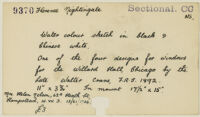 9370 Florence Nightingale Sectional. CC
NS.
Water colour sketch in black &
Chinese white.
One of the four designs for windows
for the Willard Hall Chicago by the
late Walter Crane, F.R.S. 1892.
11" x 3¾" In mount 17½" x 15"
Hampstead, N.W.3.
£3